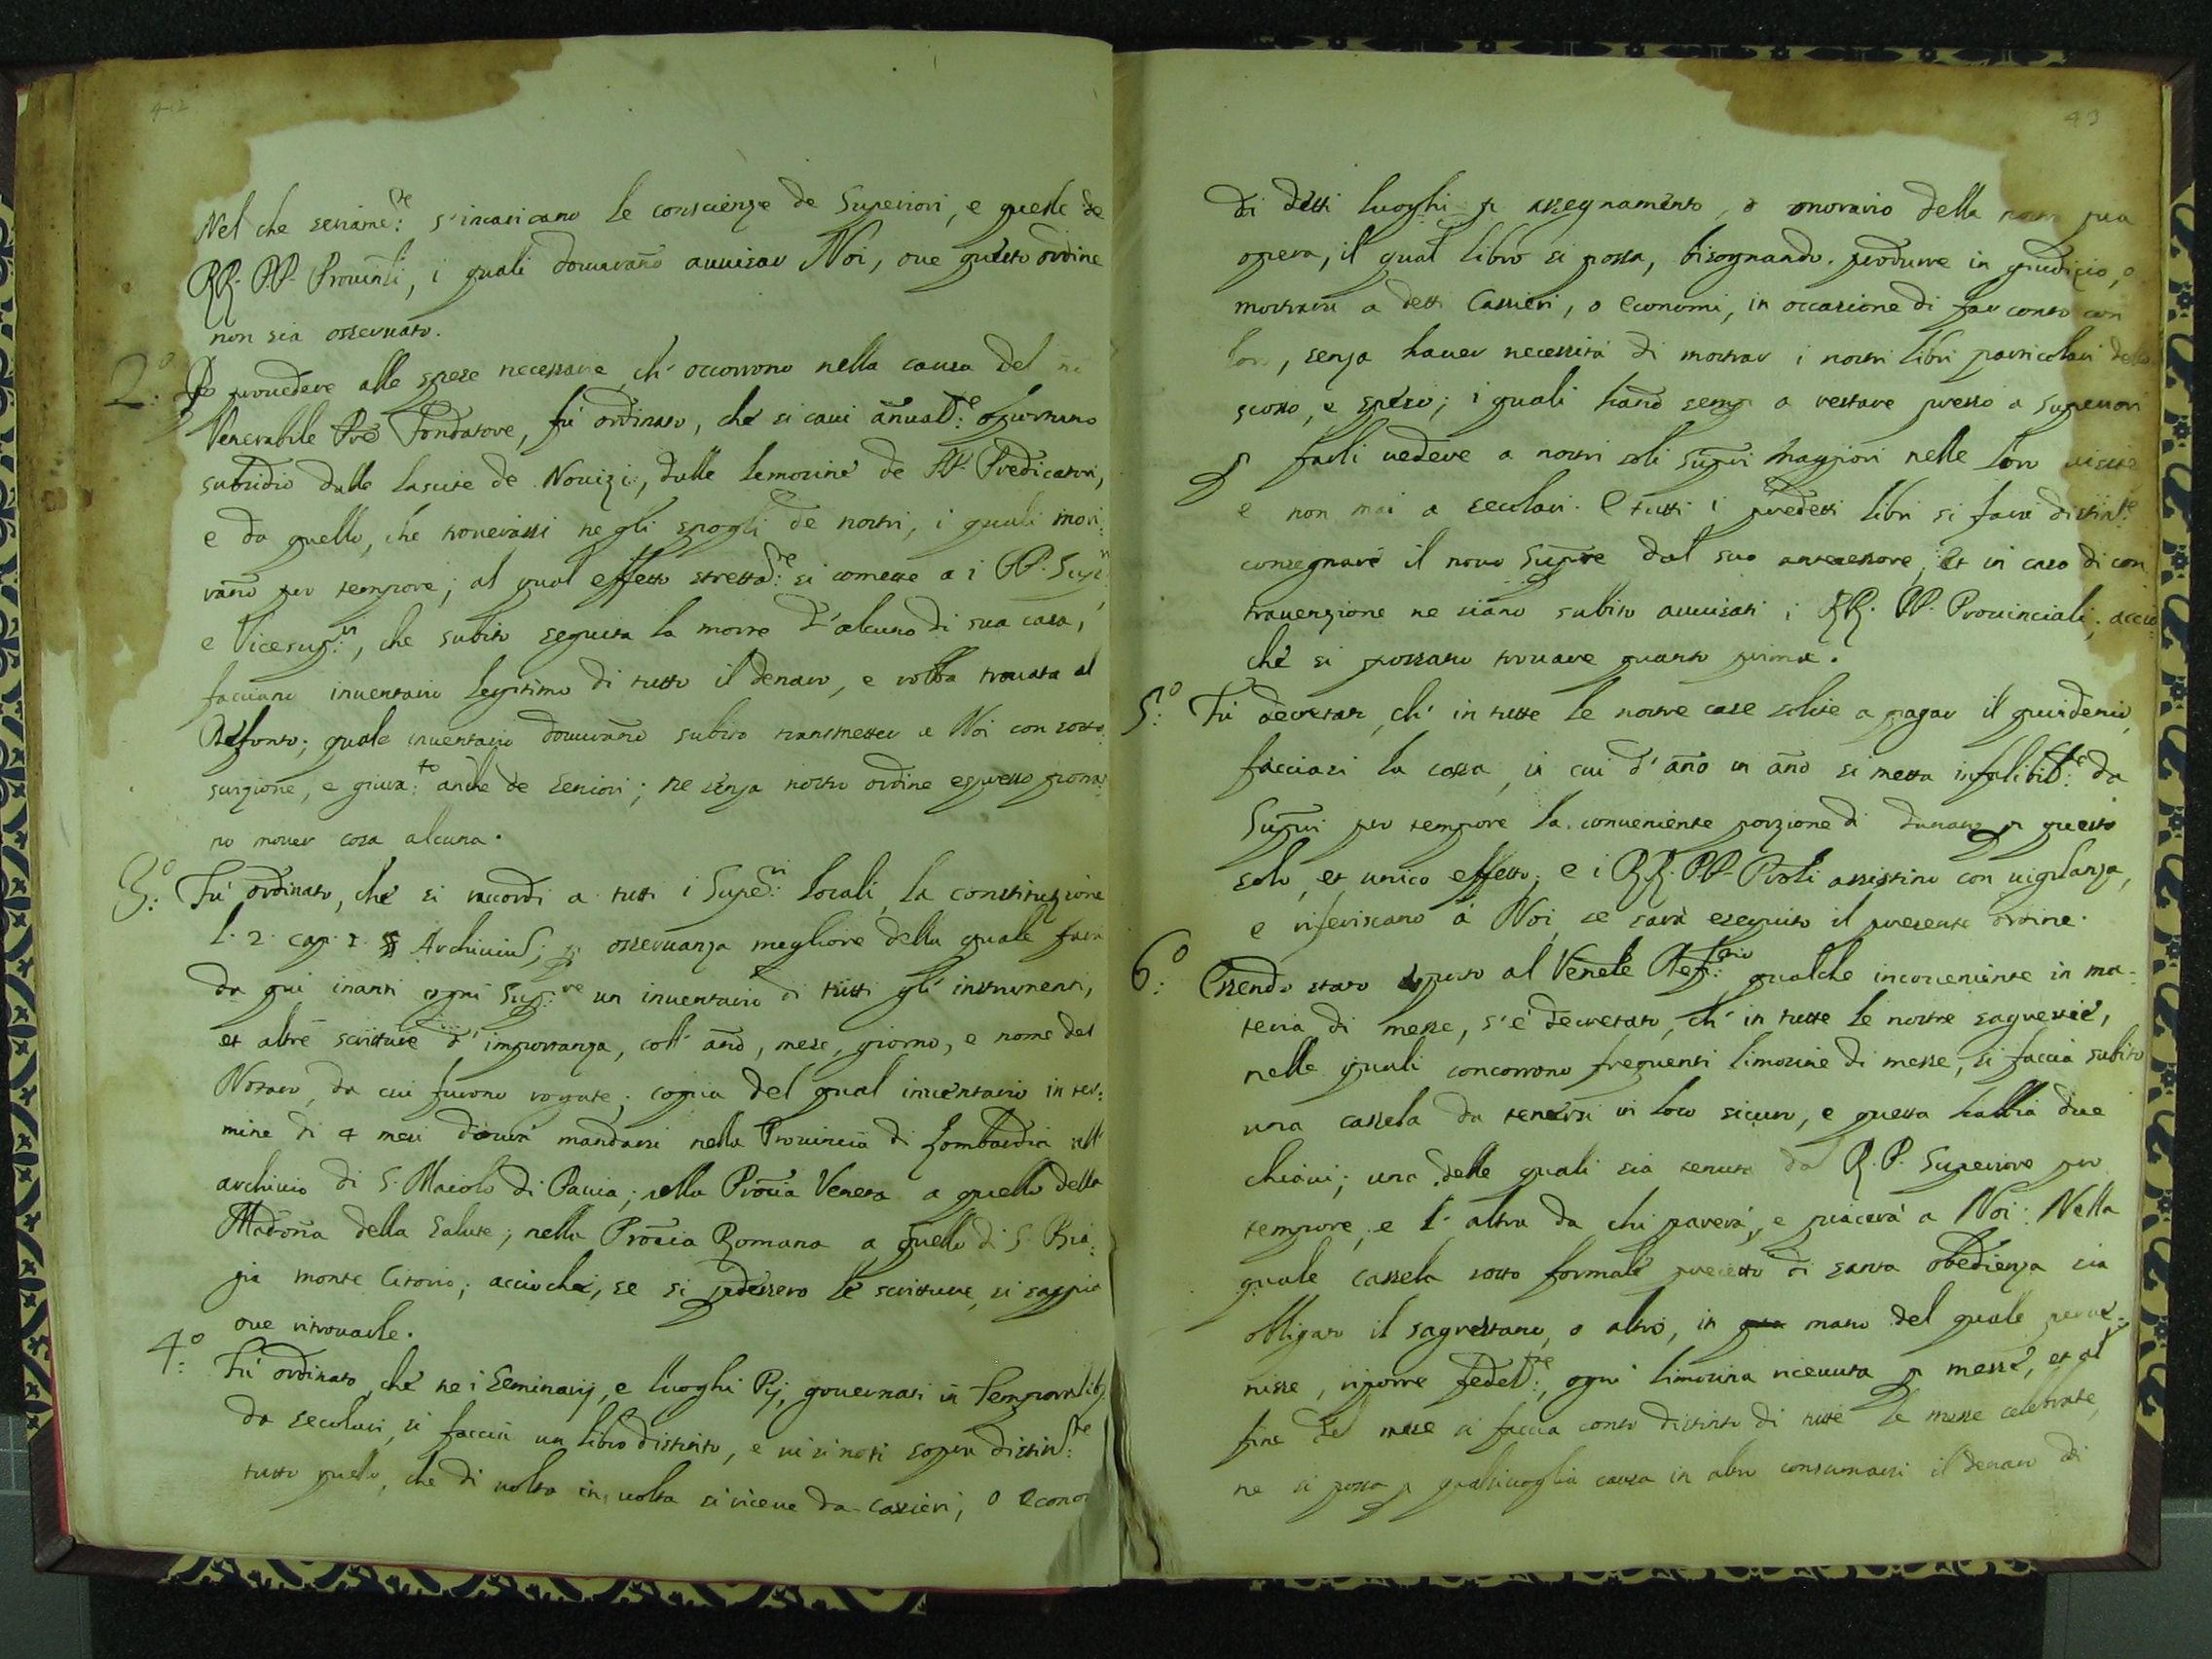 42
Nel che seriam.te: s'incaricano le conscienze de Superiori, e quelle de
RR. PP. Prouinli, i quali douurano auuisar Noi, oue questo ordine
non sia osseruato.
2.o: Per prouedere alle spese necessarie, ch' occorrono nella causa del
Venerabile Pre Fondatore, fù ordinato, che si caui annualte: opportuno
subsidio dalle lascite de Nouizi, dalle lemosine de PP. Predicatori,
e da quello, che trouerassi ne gli spogli de nostri, i quali mori:
rano per tempore; al qual effetto strettate: si comette a i PP. Supri
e Vicesupri:, che subito seguita la morte d'alcuno di sua casa,
facciano inuentario legitimo di tutto il denaro, e robba trouata al
Defonto; quale inuentario douurano subito transmetter a Noi con sotto:
scrizione, e giurato: anche de seniori; ne senza nostro ordine espresso
no mouer cosa alcuna.
3.o: Fù ordinato, che si raccordi a tutti i Superi: locali, la constituzione
l. 2. cap. 1. § Archiuium; p osseruanza megliore della quale farà
da qui inanti ogni Supre: un inuentario di tutti gl' instrumenti,
et altre scritture d' importanza, coll' ano, mese, giorno, e nome del
Notaro, da cui furono rogate; copia del qual inuentario in ter:
mine di 4 mesi dourà mandarsi nella Prouincia di Lombardia all'
archiuio di S. Maiolo di Pauia; nella Proua Veneta a quello della
Madona della Salute; nella Proua Romana a quello di S. Bia:
gio monte Citorio; accioche, se si perdessero le scritture, si sappia
oue ritrouarle.
4.o: Fù ordinato, che ne i Seminarij, e luoghi Pij, gouernati in Temporalib9
da secolari, si faccia un libro distinto, e ui si noti sopra distinte:
tutto quelo, che di uolta in uolta si riceue da Cassieri, o
43
di detti luoghi p assegnamento, o onorario della pua
opera, il qual libro si possa, bisognando, produrre in giudicio, o
mostrarsi a detti Cassieri, o Economi, in occasione di far conto con
loro, senza hauer necessità di mostrar i nostri libri particolari dello
scosso, e speso; i quali hano sempre a restare presso a Superiori
p farli uedere a nostri soli Supri Maggiori nelle loro uisite
e non mai a secolari. E tutti i predetti libri si farà distinte:
consegnare il nouo Supre dal suo antecessore; Et in caso di con
trauenzione ne siano subito auuisati i RR. PP. Prouinciali; accio
che si possano trouare quanto prima.
5.o: Fù decretato, ch' in tutte le nostre case solite a pagar il quindenio,
facciasi la cassa, in cui d' ano in ano si metta infalibilte: da
Supri per tempore la conueniente porzione di danaro p questo
solo, et unico effetto; e i RR. PP. Proli assistino con uigilanza,
e riferiscano à Noi, se sarà eseguito il presente ordine.
6.o: Essendo stato esposto al Venele Defrio: qualche inconueniente in ma-
teria di messe, s'è decretato, ch' in tutte le nostre sagrestie,
nelle quali concorrono frequenti limosine di messe, si faccia subito
una cassela da tenersi in loco sicuro, e questa habbia due
chiaui; una delle quali sia tenuta dal R. P. Superiore pro
tempore; e l' altra da chi parerà, e piacerà a Noi: Nella
quale cassela sotto formale precetto di santa obedienza sia
obligato il sagrestano, o altro, in mano del quale perue-
nisse, riporre fedelte:, ogni limosina riceuuta p messe, et al
fine del mese si faccia conto distinto di tutte le messe celebrate,
ne si possa p qualsiuoglia causa in altro consumarsi il denaro di